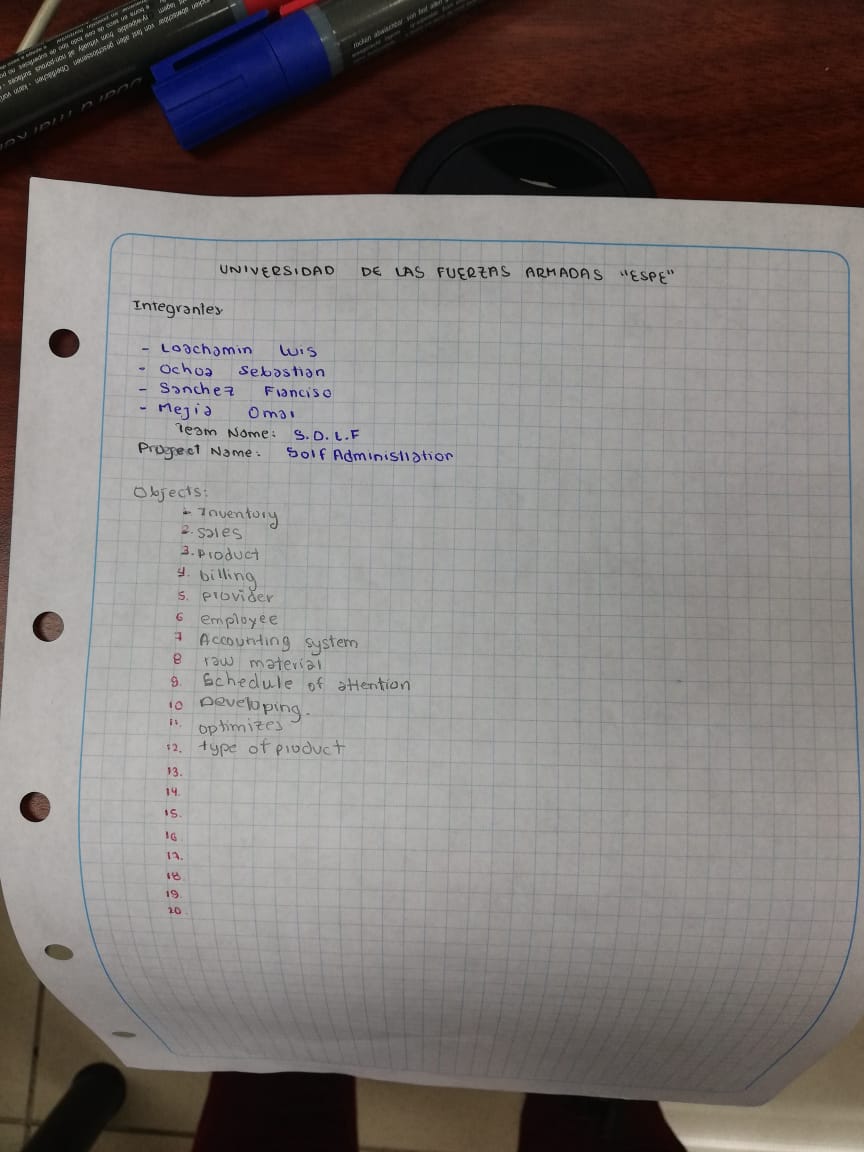 UNIVERSIDAD DE LAS FUERZAS ARMADAS "ESPE"
Integrantes
- Loachamin Luis
- Ochoa Sebastian
- Sanchez Francisco
- Mejia Omar
Team Name: S.O.L.F
Project Name: Solf Administration
Objects:
1. Inventory
2. sales
3. product
4. billing
5. provider
6 employee
7 Accounting system
8 raw material
9. Schedule of attention
10 Developing.
11. optimizes
12. type of product
13.
14.
15.
16
17.
18
19.
20